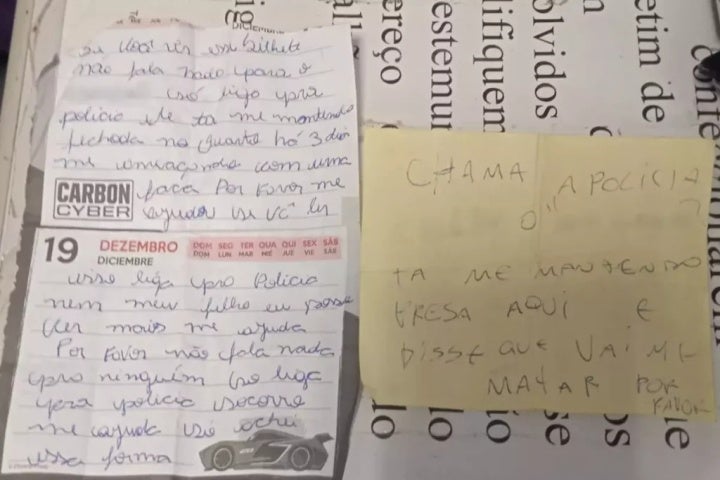 DICIEMBRE
se você ver esse bilhete
não fala nada para o
só liga pra
policia ele ta me mantendo
fechada no quarto há 3 dia
me ameaçando com uma
CARBON
CYBER
faca Por Favor me
ajudar se vc ler
19 DEZEMBRO
DICIEMBRE
DOM SEG TER QUA QUI SEX SÁB
DOM LUN MAR MIÉ JUE VIE SÁB
isso liga pro Policia
nem meu filho eu posso
ver mais me ajuda
Por Favor não fala nada
pro ninguém so liga
para policia socorro
me ajuda só achei
essa forma
CHAMA A POLICIA
O
TA ME MANTENDO
PRESA AQUI E
DISSE QUE VAI ME
MATAR POR
FAVOR
ereço
estemun
lifiquem
olvidos
etim de